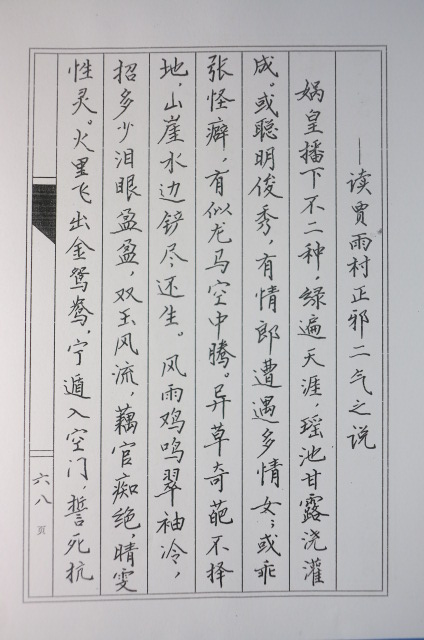 ——读贾雨村正邪二气之说
娲皇播下不二种，绿遍天涯，瑶池甘露浇灌
成。或聪明俊秀，有情郎遭遇多情女；或乖
张怪癖，有似龙马空中腾。异草奇葩不择
地，山崖水边铲尽还生。风雨鸡鸣翠袖冷，
招多少泪眼盈盈，双玉风流，藕官痴绝，晴雯
性灵。火里飞出金鸳鸯，宁遁入空门，誓死抗
六八页